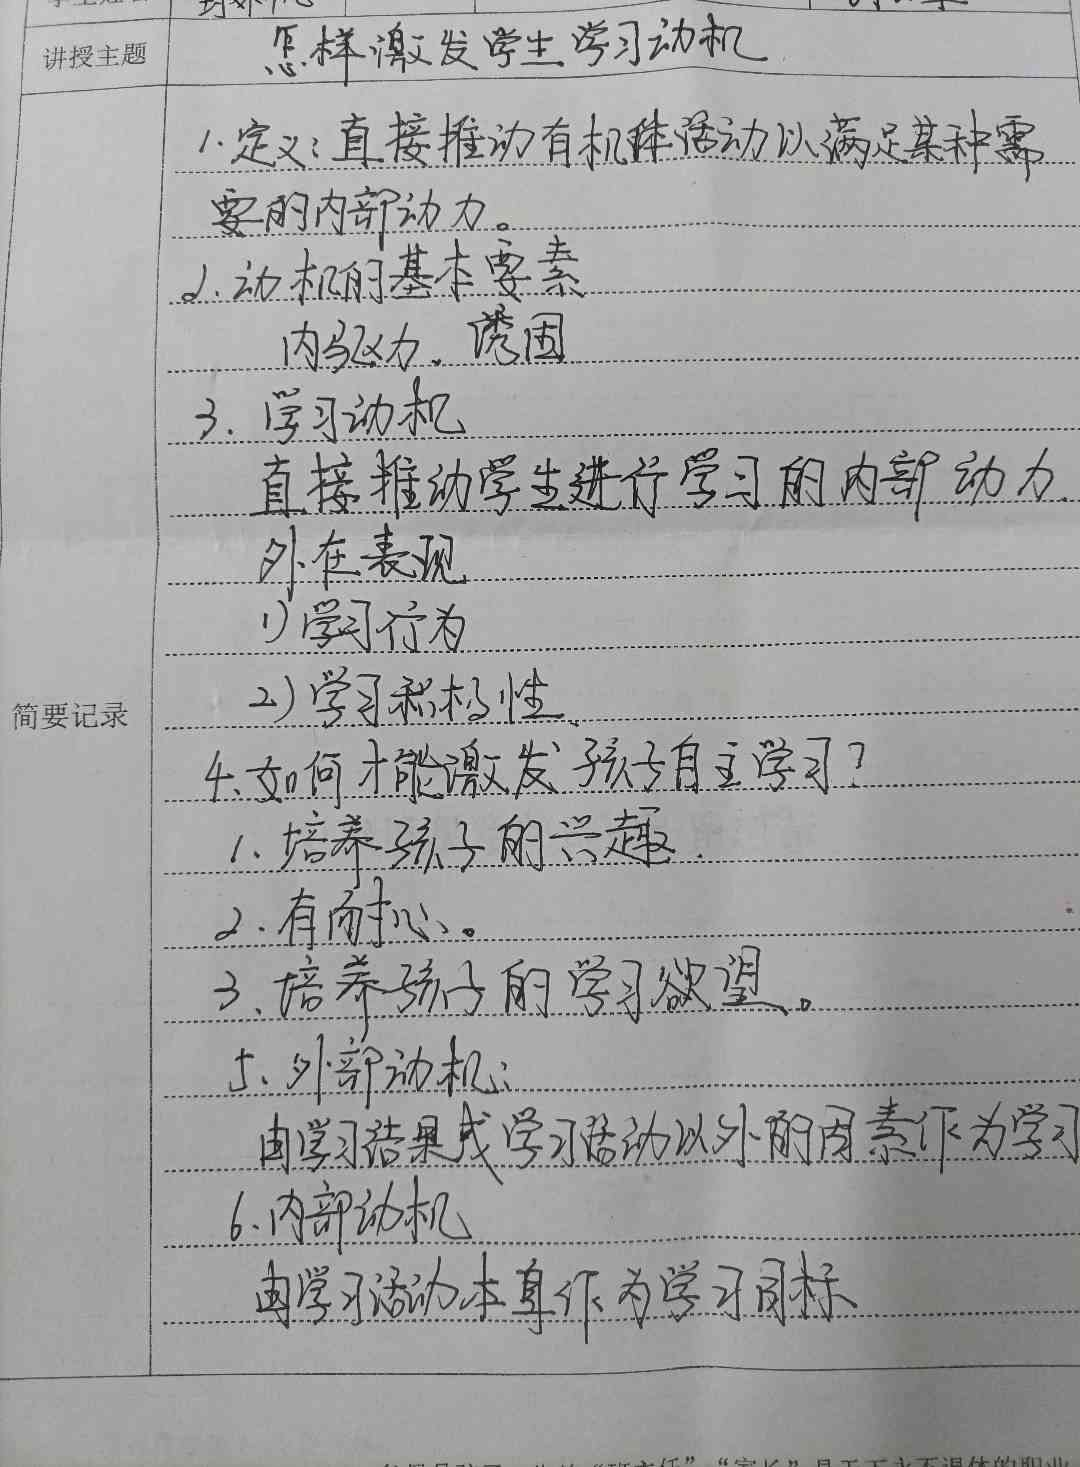 讲授主题 怎样激发学生学习动机
1.定义:直接推动有机体活动以满足某种需
要的内部动力。
2.动机的基本要素
内驱力、诱因
3.学习动机
直接推动学生进行学习的内部动力.
外在表现
1)学习行为
2)学习积极性、
简要记录
4.如何才能激发孩子自主学习?
1.培养孩子的兴趣.
2.有耐心、。
3.培养孩子的学习欲望。
5、外部动机:
由学习结果或学习活动以外的因素作为学习
6.内部动机
由学习活动本身作为学习目标